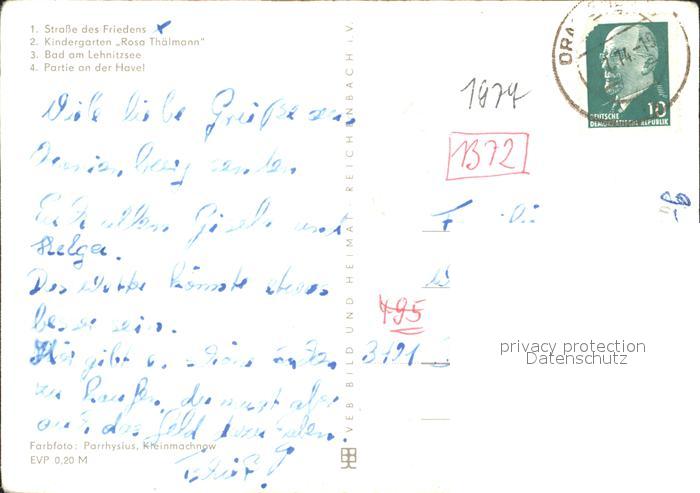 1. Straße des Friedens
2. Kindergarten „Rosa Thälmann"
3. Bad am Lehnitzsee
4. Partie an der Havel
Viele liebe Grüße aus
senden
Euch allen Gisela und
Helga.
Das Wetter könnte etwas
besser sein.
Hier gibt es schöne
zu kaufen, du musst aber
auch das Geld haben.
Farbfoto: Parrhysius, Kleinmachnow
EVP 0,20 M
VEB BILD UND HEIMAT REICHENBACH i. V.
1974
1372
495
3191
10
DEUTSCHE
DEMOKRATISCHE REPUBLIK
privacy protection
Datenschutz